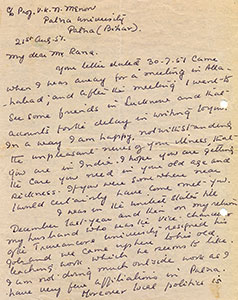 c/o Prof. V.K.N. Menon
Patna University
Patna (Bihar).
21st Aug. 57.
My dear Mr. Rana,
Your letter dated 30-7-57 came
when I was away for a meeting in Alla-
habad; and after the meeting I went to
see some friends in Lucknow and that
accounts for the delay in writing to you.
In a way I am happy, notwithstanding
the unpleasant news of your illness, that
you are in India. I hope you are getting
the care you need in your old age and
sickness. If you were some where near
I would certainly have come over.
I was in the United States till
December last year and then on my return
my husband who was the vice-chancellor
of the Travancore University resigned
and we came up here to his old
teaching work which he seems to like.
I am not doing much outside work as I
have very few affiliations in Patna.
Moreover local politics is